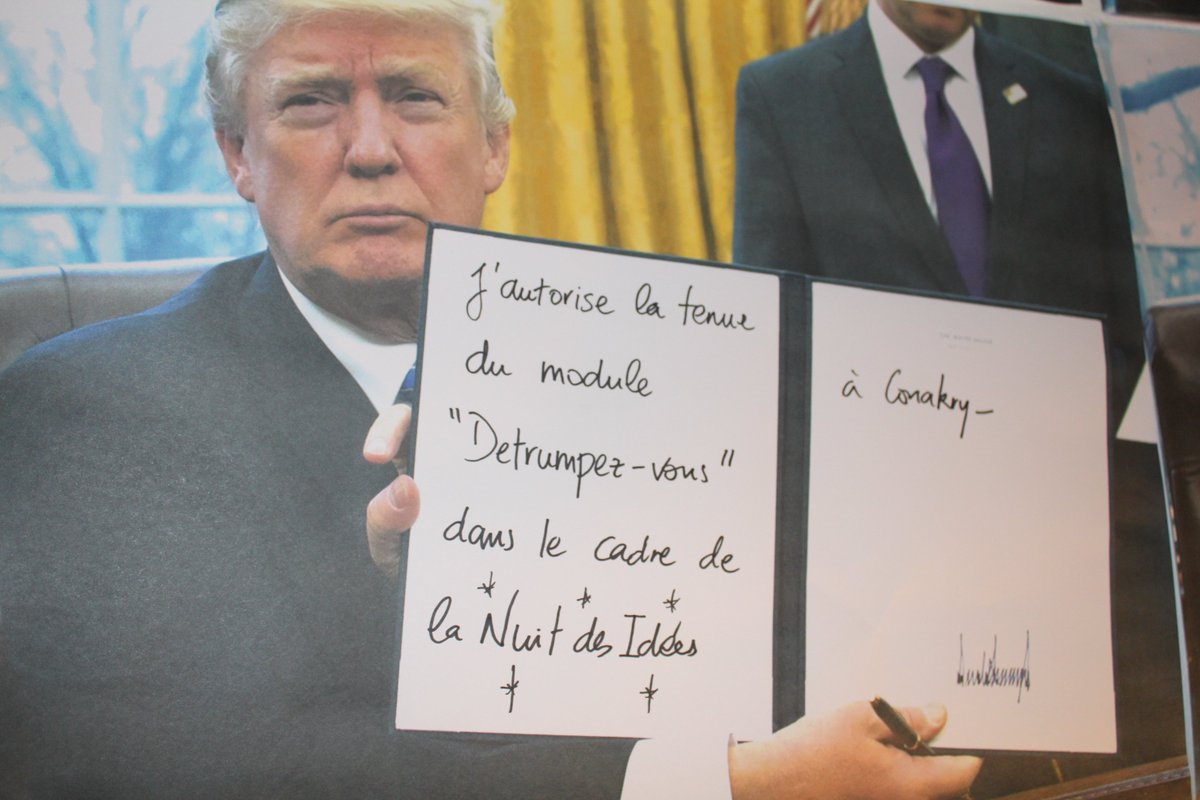 J'autorise la tenue
du module
"Detrumpez-vous"
dans le cadre de
la Nuit des Idées
à Conakry-